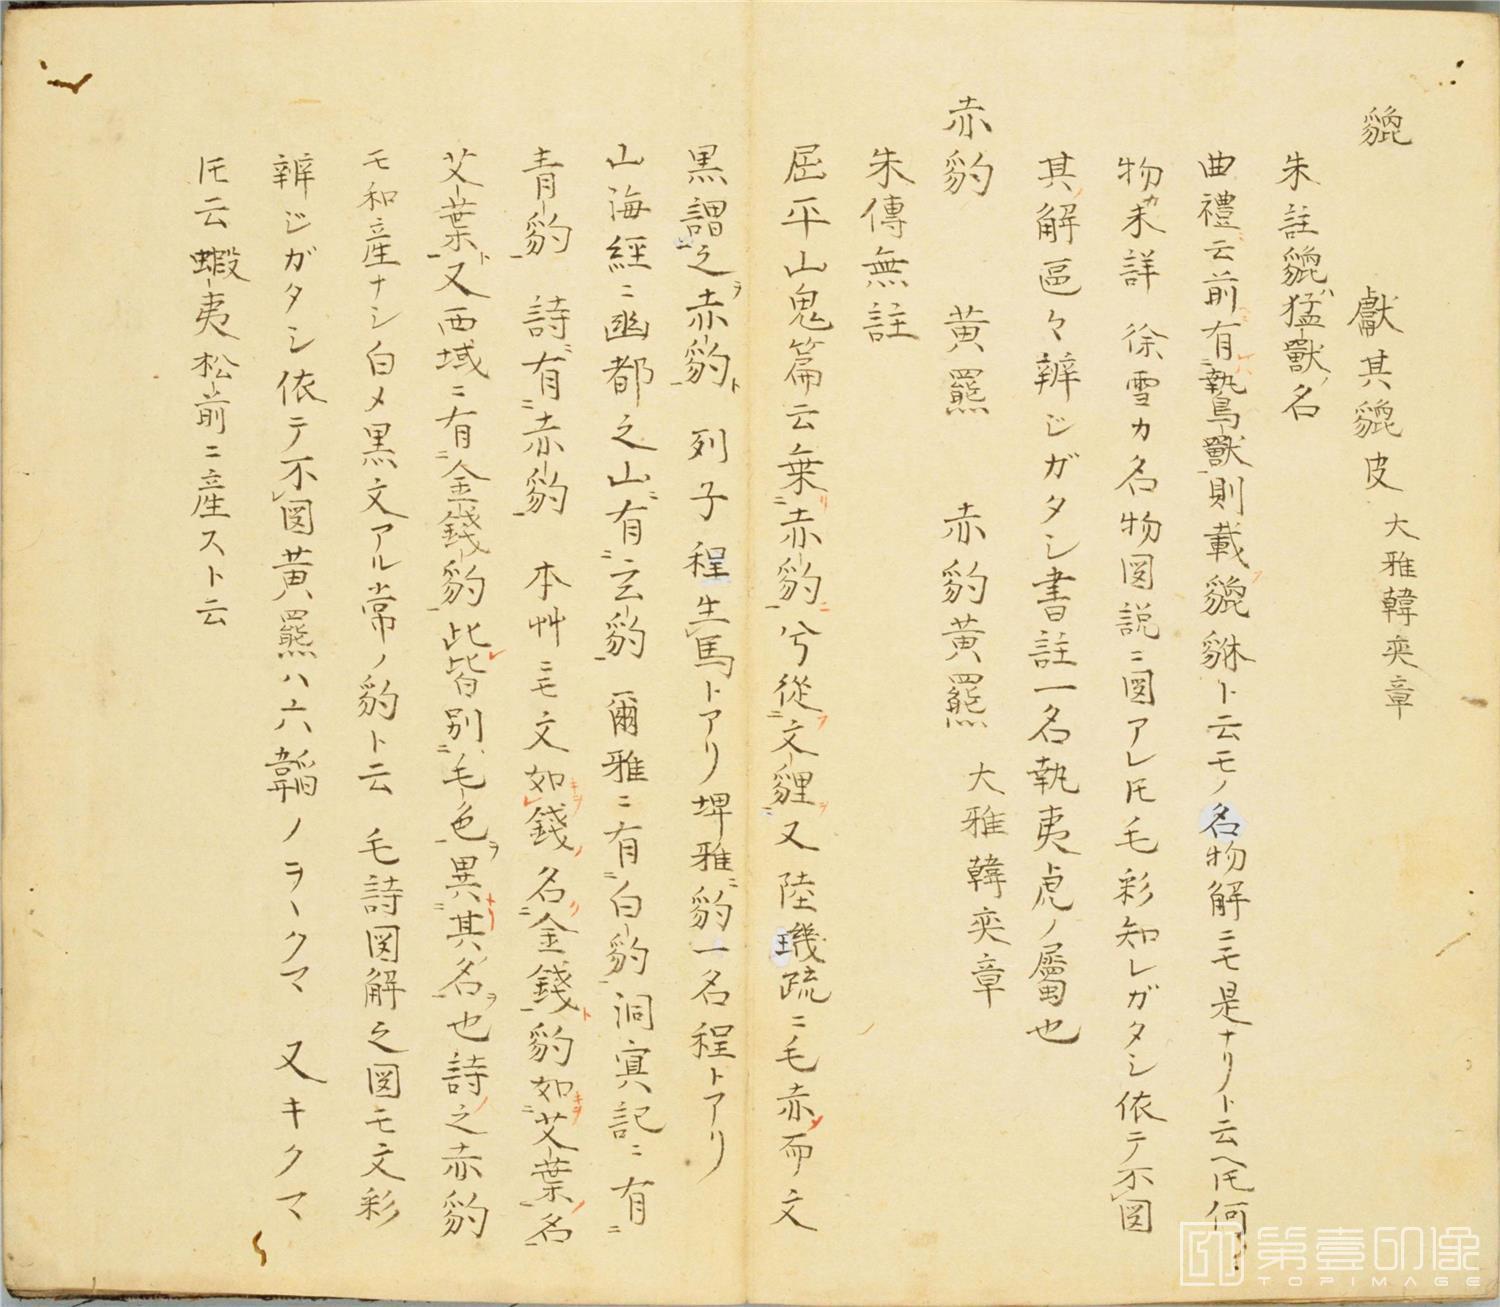 貔
獻其貔皮 大雅韓奕章
朱註貔猛獸ノ名
曲禮云前有鷙獸則載貔貅ト云モノ名物解ニモ是ナリト云ヘ𪜈何
物カ未詳 徐雪カ名物図説ニ図アレ𪜈毛彩知レガタシ依テ不図
其ノ解區々辨ジガタシ書註一名執夷虎ノ屬也
赤豹 黄羆 赤豹黄羆 大雅韓奕章
朱傳無註
屈平山鬼篇云乗リ赤豹ニ兮從フ文貍ヲニ又陸璣疏ニ毛赤ソ而文
黒謂之ヲ赤豹ト 列子程生馬トアリ埤雅ニ豹一名程トアリ
山海經ニ幽都之山ニ有ニ玄豹 爾雅ニ有ニ白豹 洞㝠記ニ有ニ
青豹 詩ニ有ニ赤豹 本艸ニモ文如キヲ錢ノ名ク金錢豹ト如キヲ艾葉ノ名
艾葉ト又西域ニ有ニ金錢豹此皆別ニ毛色ヲ異ニ其名ヲ也詩ノ之赤豹
モ和産ナシ白メ黒文アル常ノ豹ト云 毛詩図解之図モ文彩
辨ジガタシ依テ不図黄羆ハ六韜ノヲヽクマ 又キクマ
𪜈云蝦夷松前ニ産スト云
第壹印像
TOPIMAGE